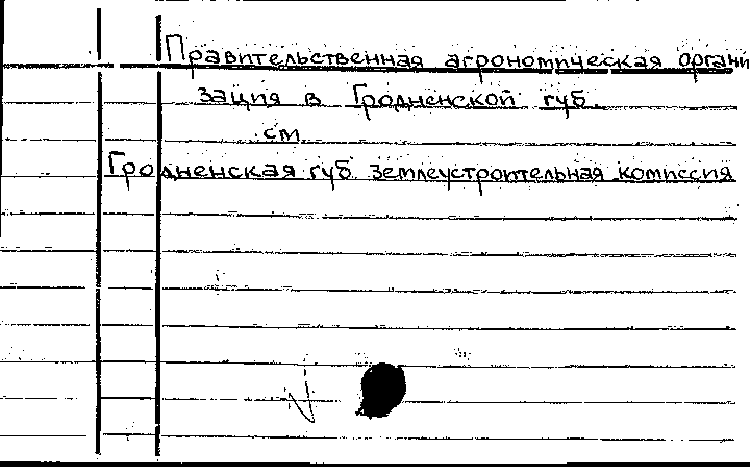 Правительственная агрономическая органи
зация в Гродненской губ.
см.
Гродненская губ. землеустроительная комиссия